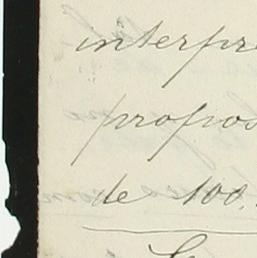 interpre
propos
de 100.